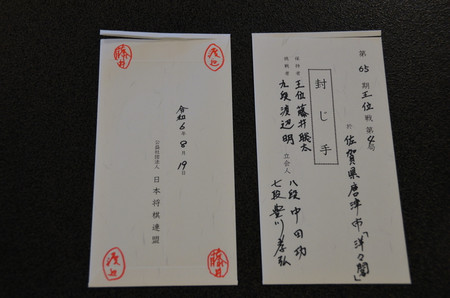 第65期王位戦第4局
於 佐賀県唐津市「洋々閣」
封じ手
立会人 八段 中田功
七段 豊川孝弘
保持者 王位 藤井聡太
挑戦者 九段 渡辺 明
渡辺
藤井
令和6年8月19日
公益社団法人 日本将棋連盟
藤井
渡辺